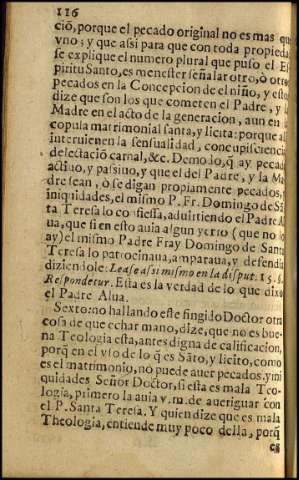 116
ciō, porque el pecado original no es mas que
vno; y que assi para que con toda propieda
se explique el numero plural que puso el Es
piritu Santo, es menester señalar otro, ò otros
pecados en la Concepcion de el niño, y esto
dize que son los que cometen el Padre, y la
Madre en el acto de la generacion, aun en la
copula matrimonial santa, y licita: porque alli
interuienen la sensualidad, concupiscencia
delectació carnal, &c. De modo, q̃ ay pecado
actiuo, y passiuo, y que el del Padre, y la Ma
dre sean, ò se digan propiamente pecados,
iniquidades, el mismo P. Fr. Domingo de Sã
ta Teresa lo cõfiessa, aduirtiendo el Padre Al
ua, que si en esto auia algun yerro (que no lo
ay) el mismo Padre Fray Domingo de Santa
Teresa lo patrocinaua, amparaua, y defendia
diziendole: Lease a si mismo en la disput. 15. §.
Respondetur. Esta es la verdad de lo que dixo
el Padre Alua.
Sexto: no hallando este fingido Doctor otra
cosa de que echar mano, dize, que no es bue-
na Teologia esta, antes digna de calificacion,
porq̃ en el vso de lo q̃ es Sãto, y licito, como
es el matrimonio, no puede auer pecados, y ini
quidades Señor Doctor, si esta es mala Teo-
logia, primero la auia v. m. de aueriguar con
el P. Santa Teresa. Y quien dize que es mala
Theologia, entiende muy poco della, porq̃